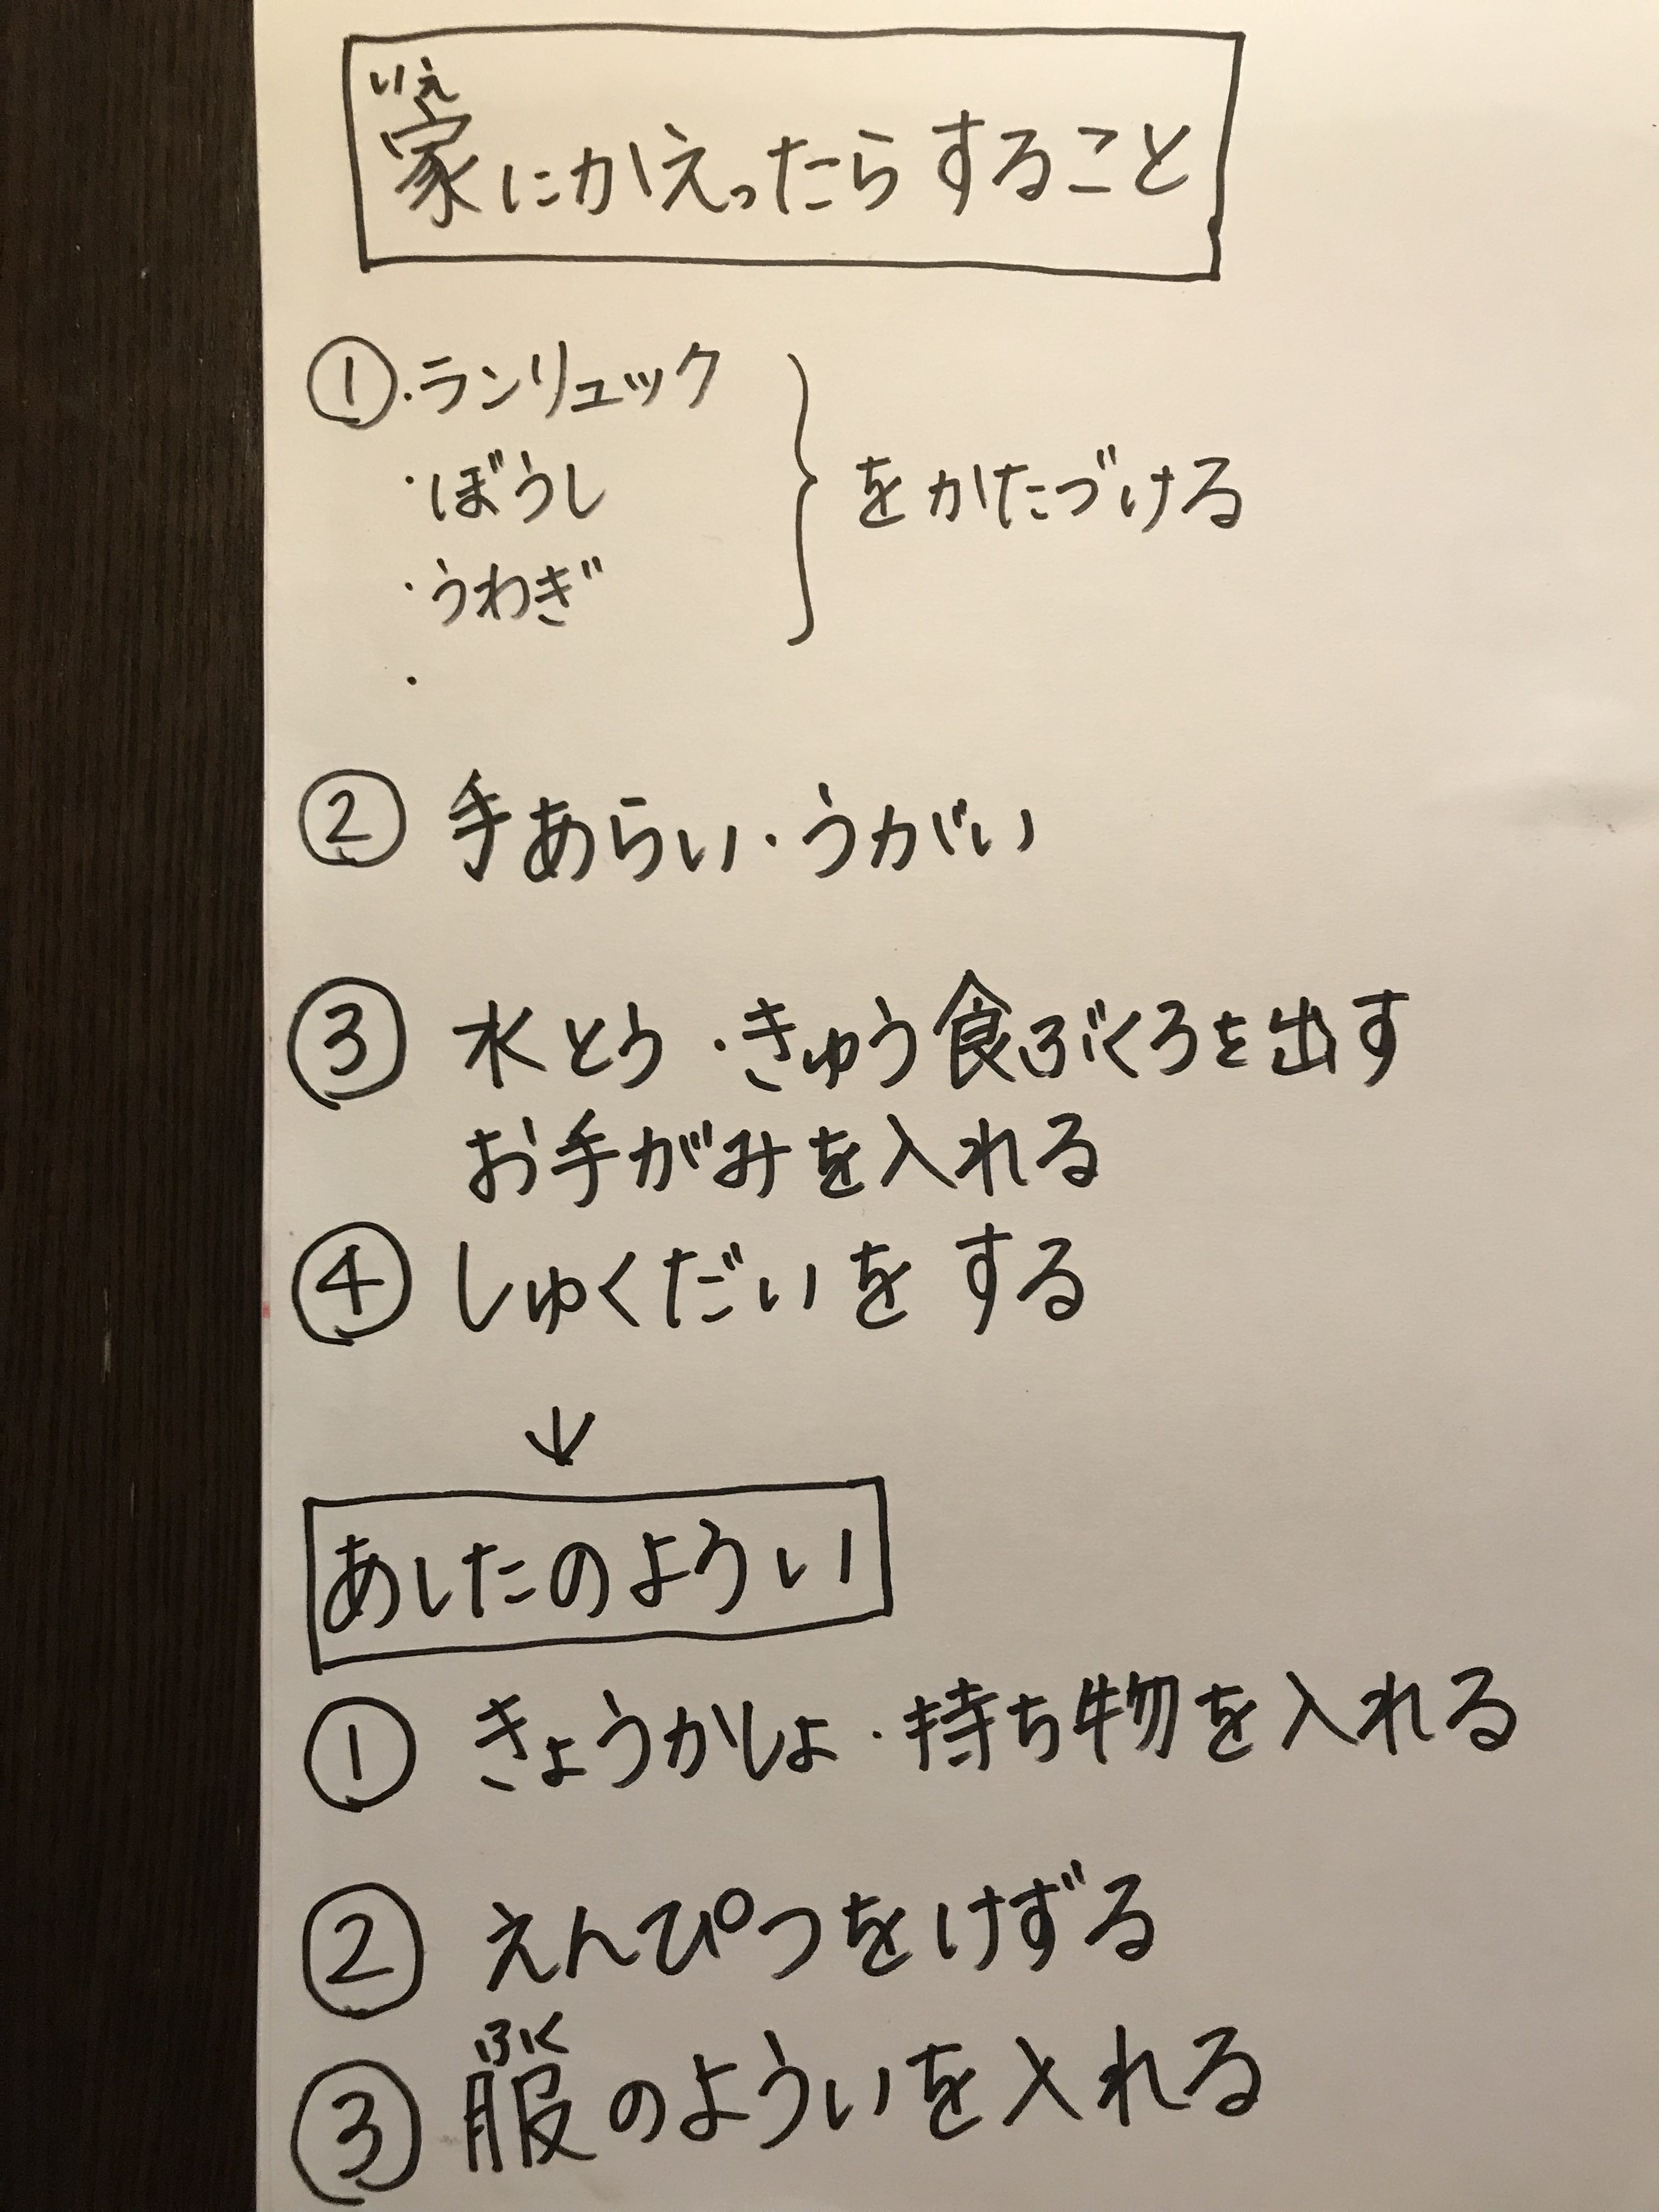 いえ
家にかえったらすること
①・ランリュック
・ぼうし
をかたづける
・うわぎ
・
②手あらい・うがい
③水とう・きゅう食ぶくろを出す
お手がみを入れる
④しゅくだいをする
↓
あしたのようい
①きょうかしょ・持ち物を入れる
②えんぴつをけずる
ふく
③服のよういを入れる